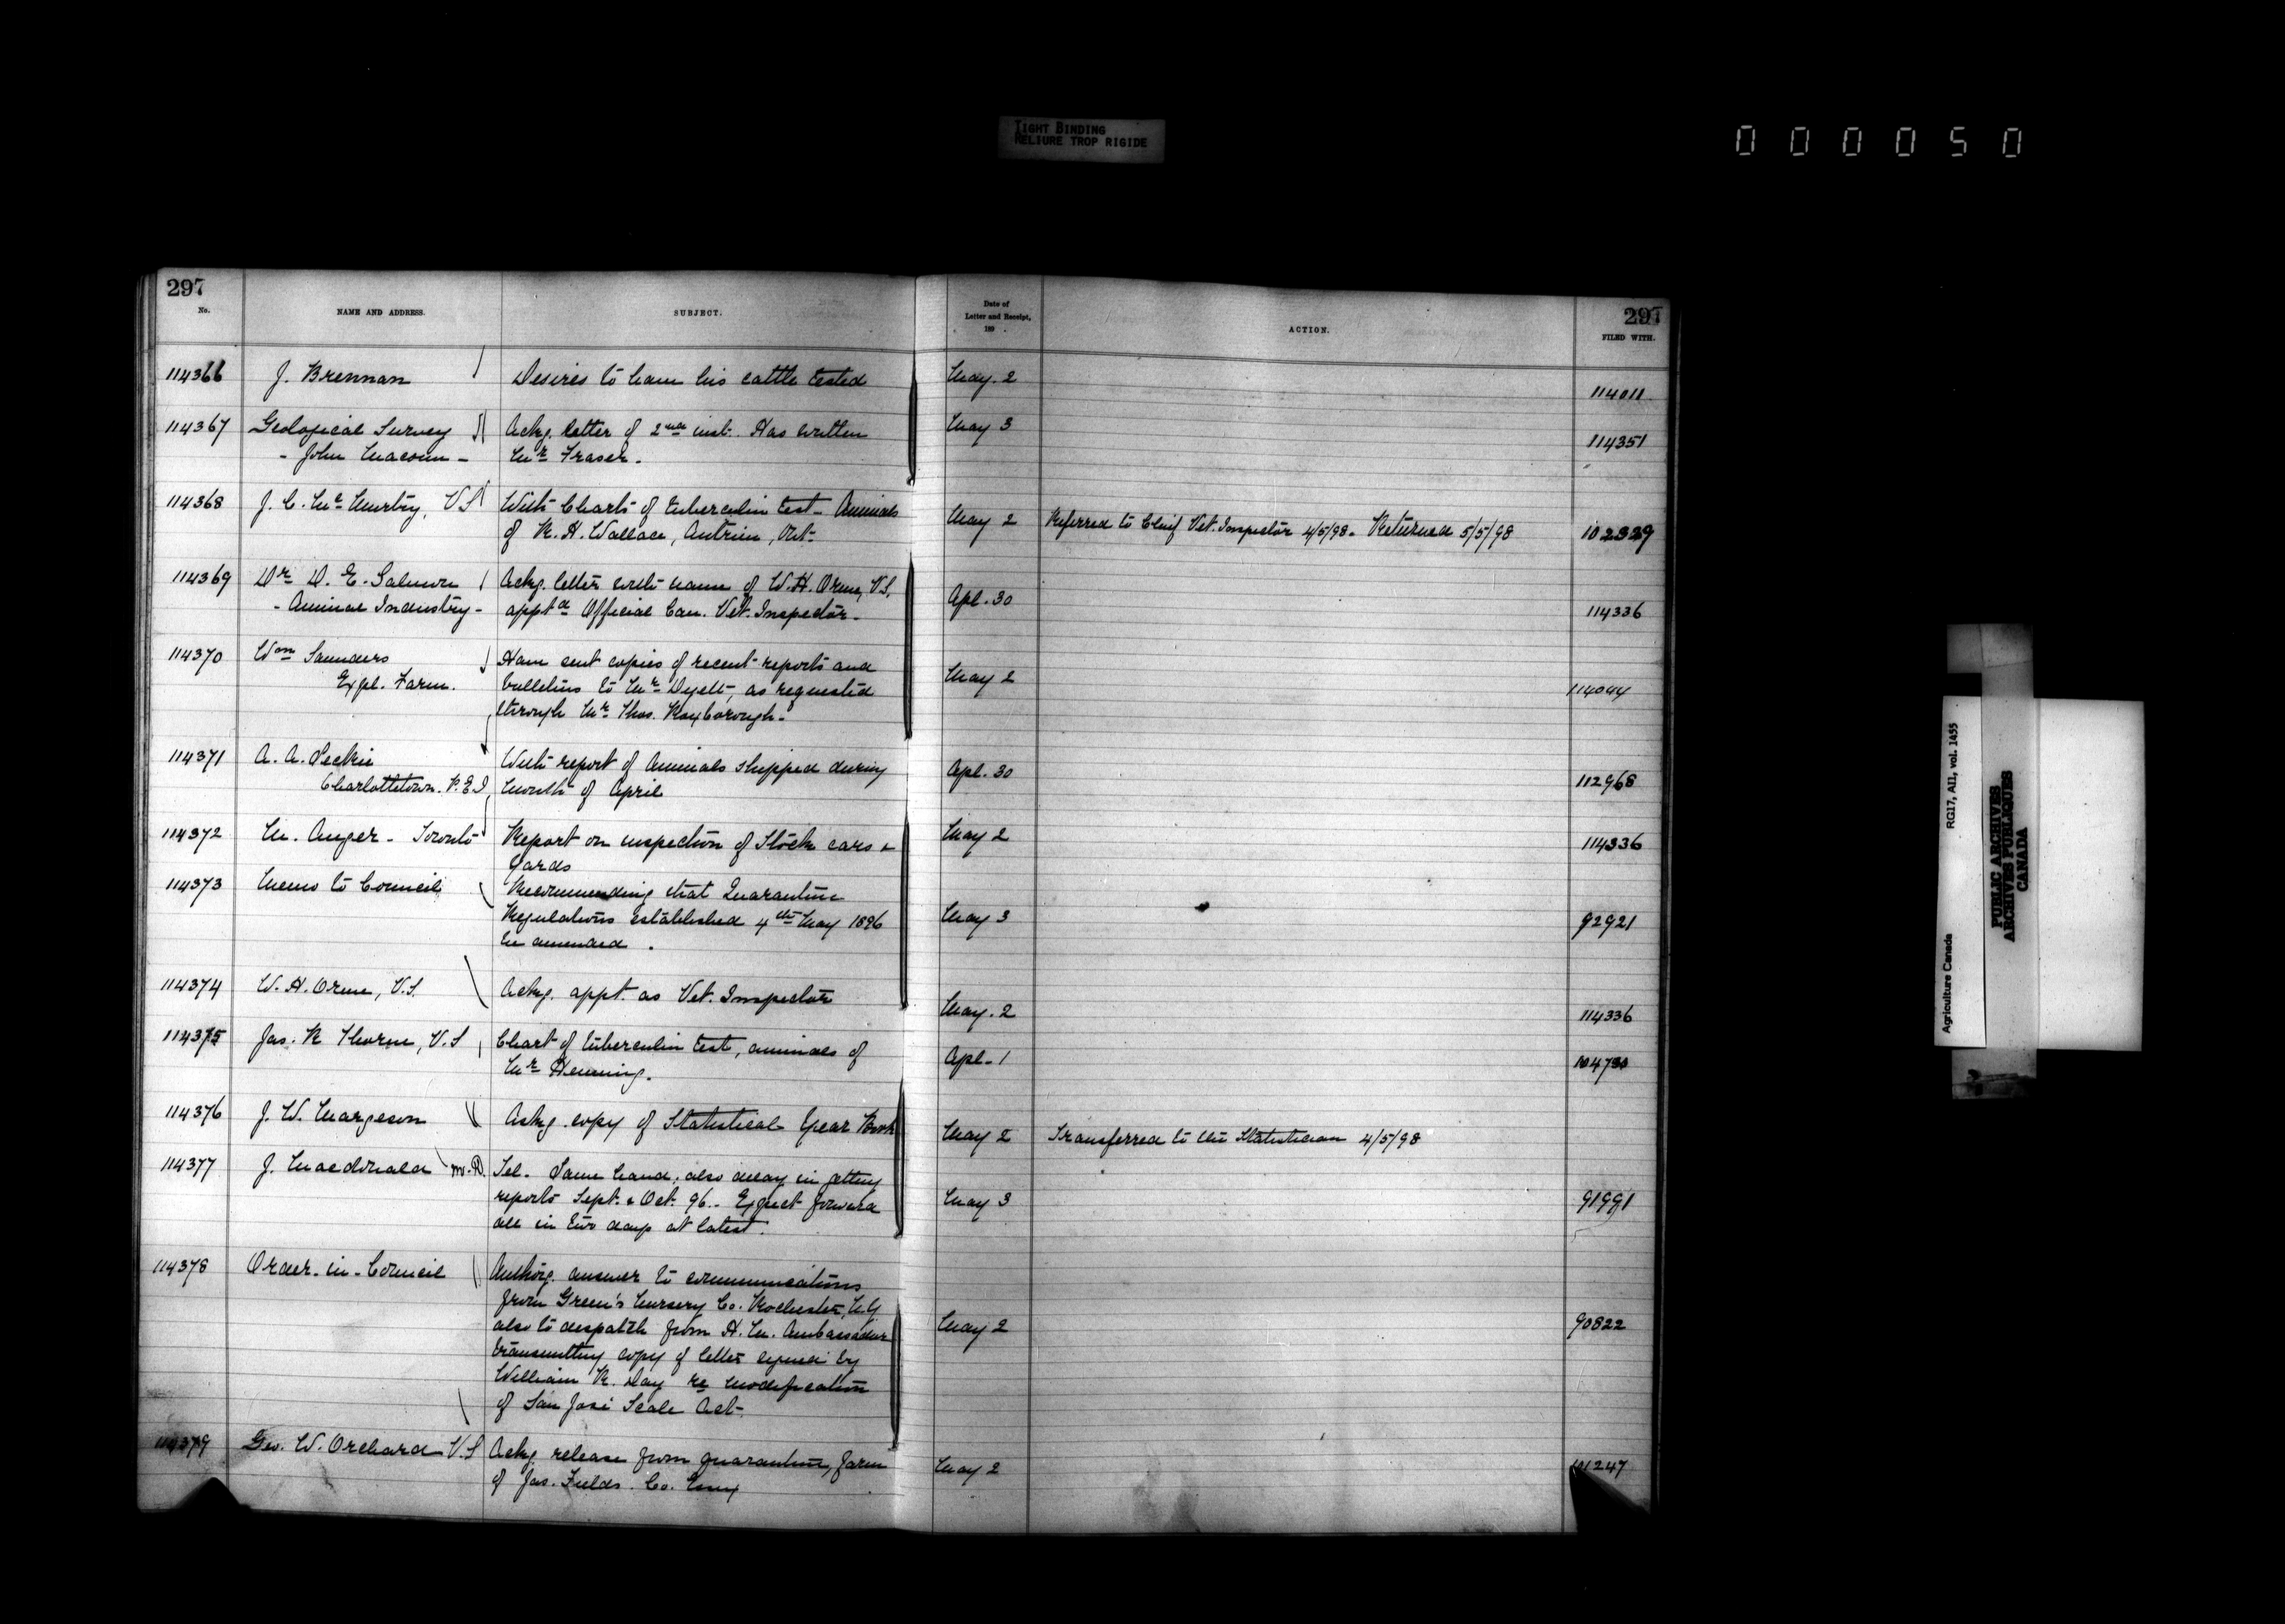 TIGHT BINDING
RELIURE TROP RIGIDE
0 0 0 0 5 0
297
297
No.
NAME AND ADDRESS.
SUBJECT.
Date of
Letter and Receipt,
189 .
ACTION.
FILED WITH.
114366 J. Brennan Desires to have his cattle tested May. 2 114011
114367 Geological Survey Ackg. letter of 2nd inst. Has written May 3 114351
- John Macoun - Mr Fraser.
114368 J. C. McMurtry, V.S With Charts of tuberculin test - Animals May 2 Referred to Chief Vet. Inspector 4/5/98. Returned 5/5/98 102339
of R. H. Wallace, Antrim, Ont.
114369 Dr D. E. Salmon Ackg. letter with name of W. H. Orme, V.S. Apl. 30 114336
- Animal Industry - apptd Official Can. Vet. Inspector.
114370 Wm Saunders Have sent copies of recent reports and May 2 114044
Expl. Farm. bulletins to Mr Dyett, as requested
through Mr Thos. Roxborough.
114371 A. A. Leckie With report of Animals shipped during Apl. 30 112968
Charlottetown. P.E.I. month of April
114372 M. Auger - Toronto Report on inspection of Stock cars & May 2 114336
yards
114373 Memo to Council Recommending that Quarantine May 3 92921
Regulations established 4th May 1896
be amended.
114374 W. H. Orme, V.S. Ackg. appt. as Vet. Inspector May. 2 114336
114375 Jas. R Thorne, V.S Chart of tuberculin test, animals of Apl. 1 104730
Mr Henning.
114376 J. W. Margeson Ackg. copy of Statistical Year Book May 2 Transferred to the Statistician 4/5/98
114377 J. Macdonald M.D. Tel. Same hand, also delay in getting May 3 91991
reports Sept. & Oct. 96. Expect forward
all in two days at latest.
114378 Order-in-Council Authorg. answer to communications May 2 90822
from Green's Nursery Co. Rochester, N.Y
also to despatch from H. M. Ambassador
transmitting copy of letter signed by
William R. Day re modification
of San José Scale Act.
114379 Geo. W. Orchard V.S Ackg release from quarantine, farm May 2 101247
of Jas. Fields. Co. Essex
Agriculture Canada RG17, AII, vol. 1455
PUBLIC ARCHIVES
ARCHIVES PUBLIQUES
CANADA